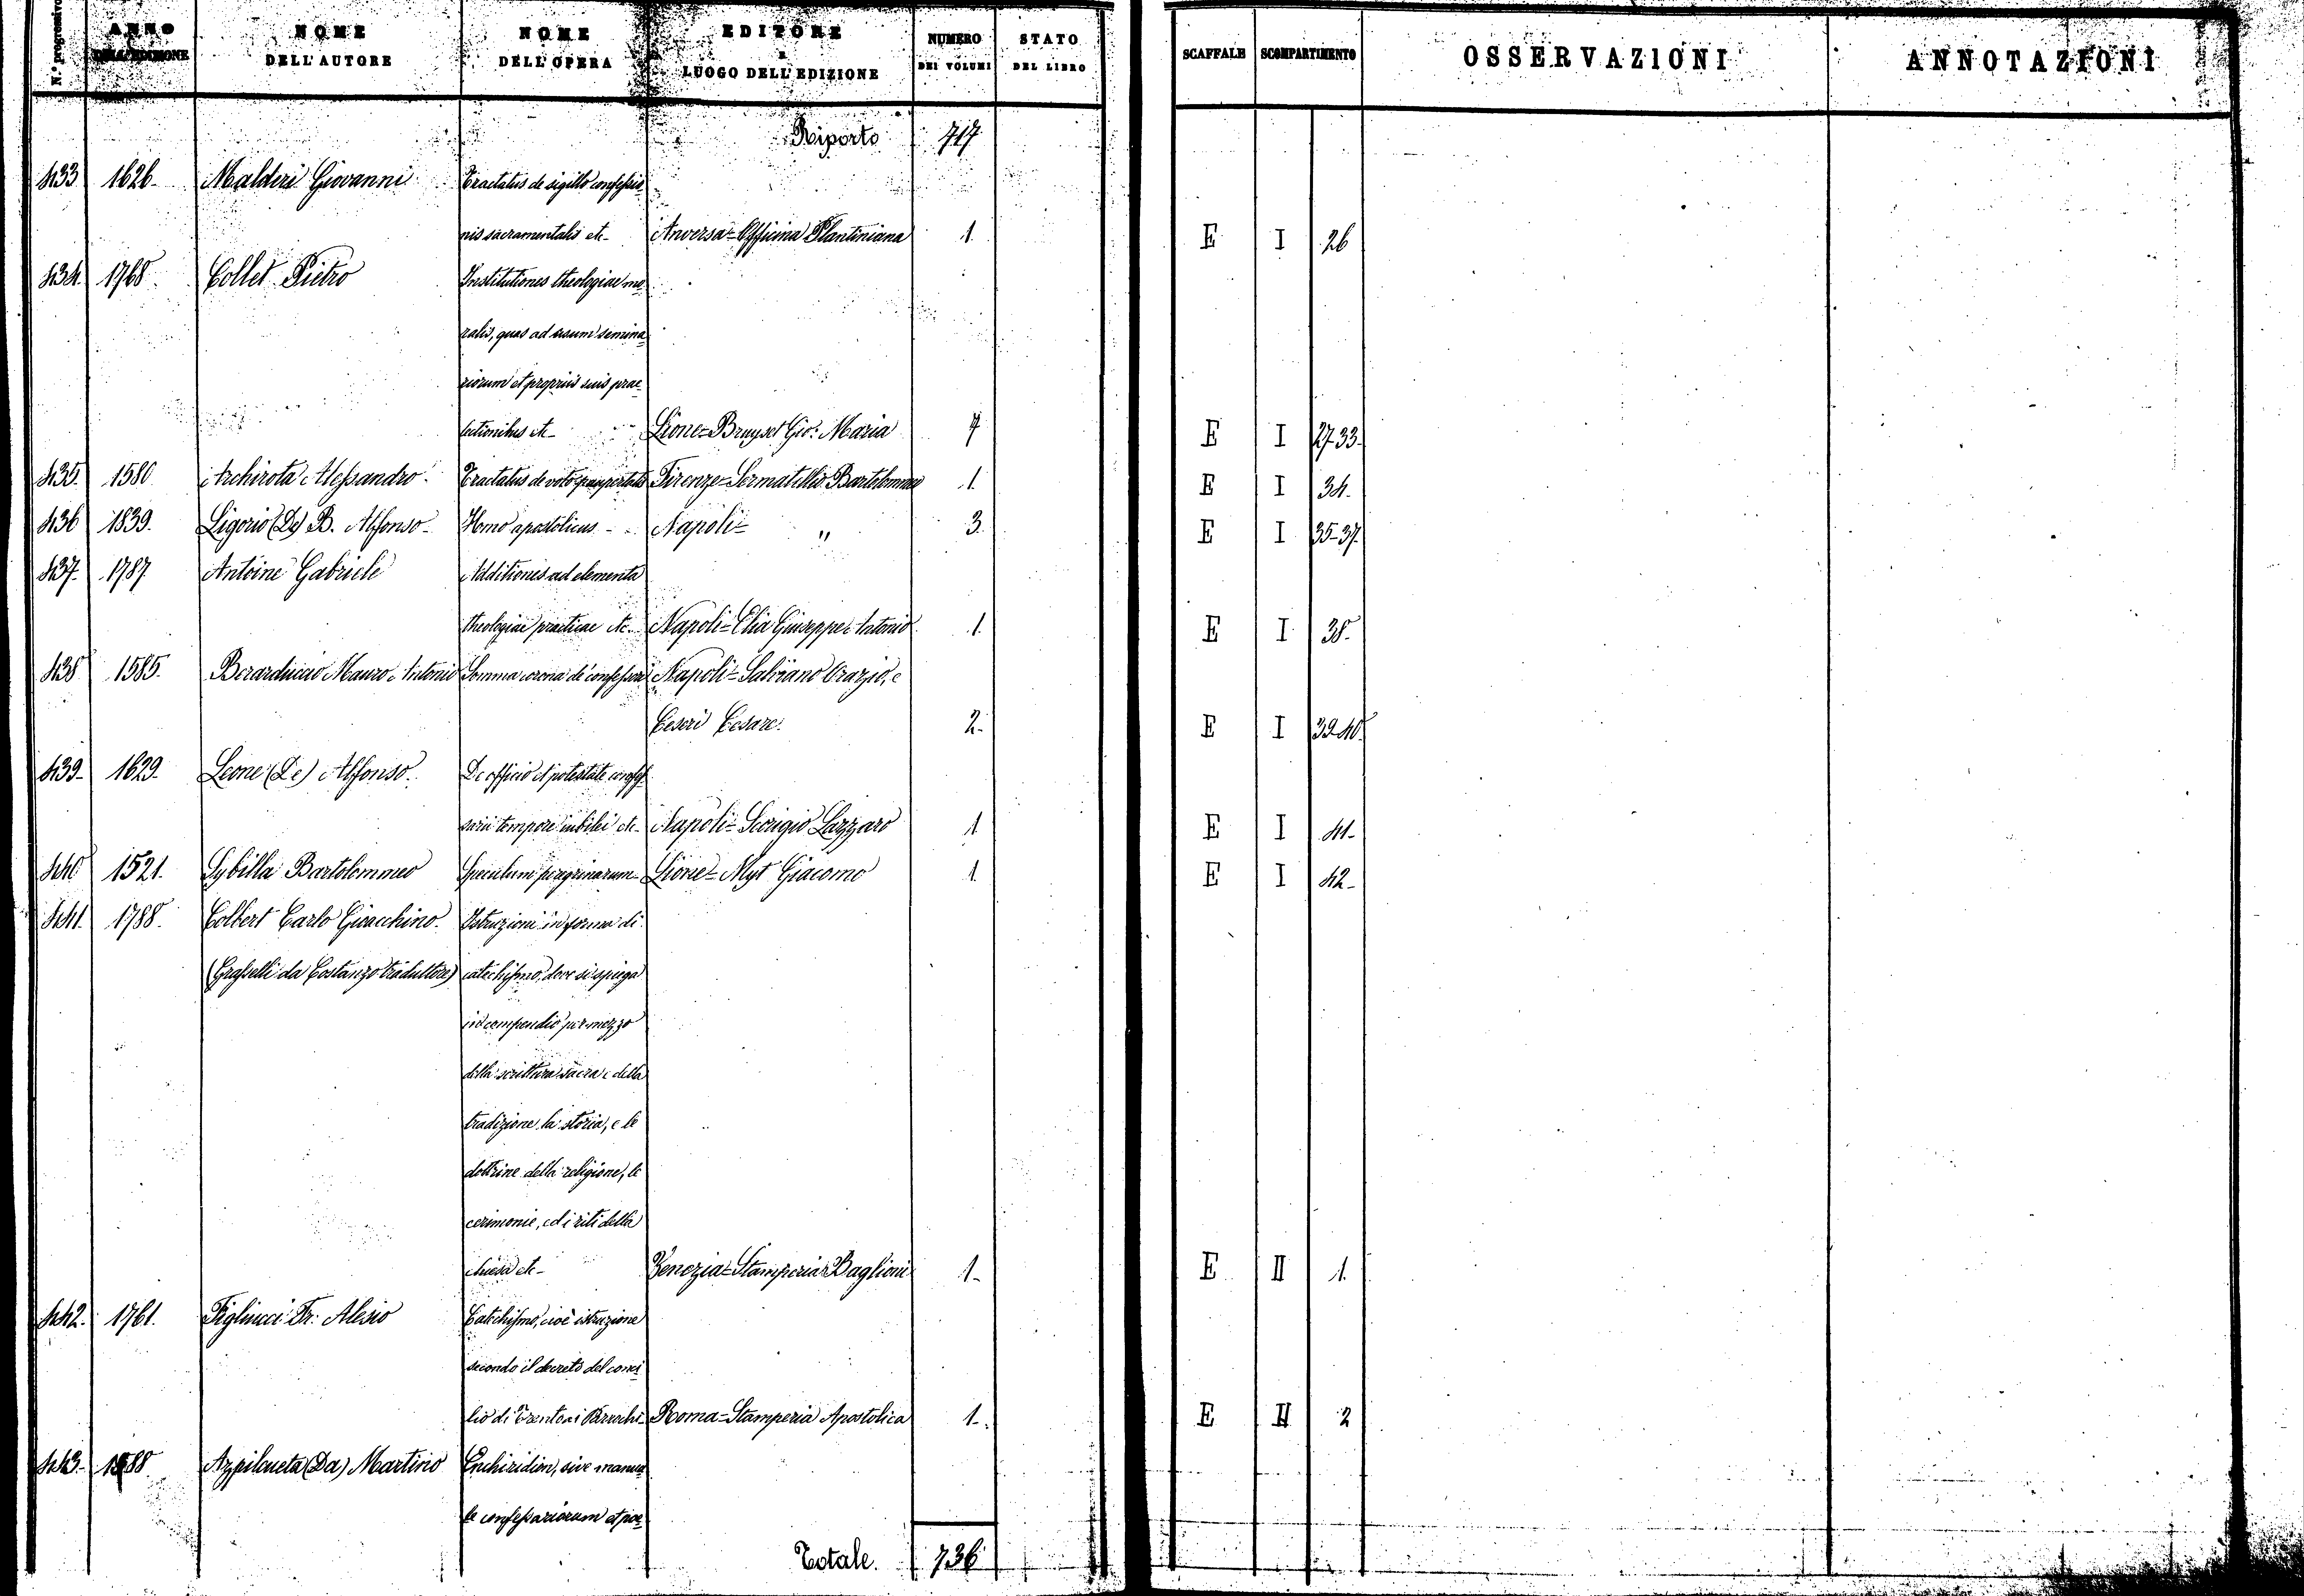 N.° progressivo ANNO DELL'EDIZIONE NOME DELL'AUTORE NOME DELL'OPERA EDITORE E LUOGO DELL'EDIZIONE NUMERO DEI VOLUMI STATO DEL LIBRO SCAFFALE SCOMPARTIMENTO OSSERVAZIONI ANNOTAZIONI
Riporto 717
433 1626. Malderi Giovanni Tractatus de sigillo confessio
nis sacramentalis etc. Anversa = Officina Plantiniana 1. E I 26
434. 1768. Collet Pietro Institutiones theologiae mo
ralis, quas ad usum semina
riorum et propriis suis prae
lectionibus etc. Lione = Bruyset Gio: Maria 7 E I 27-33.
435. 1580. Archirota Alessandro. Tractatus de voto paupertatis Firenze = Sermatelli Bartolommeo 1. E I 34.
436 1839. Ligorio (De) B. Alfonso Homo apostolicus Napoli = " 3. E I 35-37.
437. 1787. Antoine Gabriele Additiones ad elementa
theologiae practicae etc. Napoli = Elia Giuseppe Antonio 1. E I 38.
438 1585. Berarduccio Mauro Antonio Somma corona de' confessori Napoli = Salviano Orazio, e
Ceseri Cesare. 2. E I 39-40.
439. 1629. Leone (De) Alfonso. De officio et potestate confes
sarii tempore iubilei etc. Napoli = Scorigio Lazzaro 1. E I 41.
440 1521. Sybilla Bartolommeo Speculum peregrinarum Lione = Myt Giacomo 1. E I 42.
441. 1788. Colbert Carlo Gioacchino. Istruzioni in forma di
(Grasselli da Costanzo traduttore) catechismo, dove si spiega
in compendio per mezzo
della scrittura sacra e della
tradizione la storia, e le
dottrine della religione, le
cerimonie, ed i riti della
chiesa etc. Venezia = Stamperia Baglioni 1. E II 1.
442. 1761. Figliucci Fr: Alesio Catechismo, cioè istruzione
secondo il decreto del conci
lio di Trento ai Parrochi Roma = Stamperia Apostolica 1. E II 2
443. 1588 Azpilcueta (Da) Martino Enchiridion, sive manua
le confessariorum et poe
Totale. 736